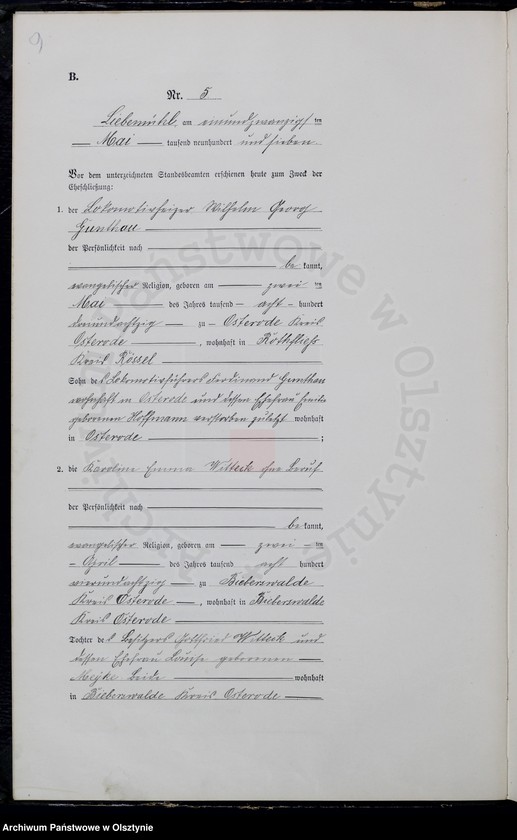 9
B.
Nr. 5
Liebemühl, am einundzwanzigsten
Mai tausend neunhundert und sieben
Vor dem unterzeichneten Standesbeamten erschienen heute zum Zweck der
Eheschließung:
1. der Lokomotivheizer Wilhelm Georg
Gunthau
der Persönlichkeit nach
be kannt,
evangelischer Religion, geboren am zwei ten
Mai des Jahres tausend acht hundert
dreiundachtzig zu Osterode Kreis
Osterode, wohnhaft in Rothfließ
Kreis Rössel
Sohn des Lokomotivführers Ferdinand Gunthau
wohnhaft in Osterode und dessen Ehefrau
geborenen Hoffmann verstorben zuletzt wohnhaft
in Osterode ;
2. die Karoline Emma Witteck ohne Beruf
der Persönlichkeit nach
be kannt,
evangelischer Religion, geboren am zwei ten
April des Jahres tausend acht hundert
vierundachtzig zu Bieberswalde
Kreis Osterode, wohnhaft in Bieberswalde
Kreis Osterode
Tochter des Besitzers Gottfried Witteck und
dessen Ehefrau Louise geborenen
beide wohnhaft
in Bieberswalde Kreis Osterode
Archiwum Państwowe w Olsztynie
Archiwum Państwowe w Olsztynie